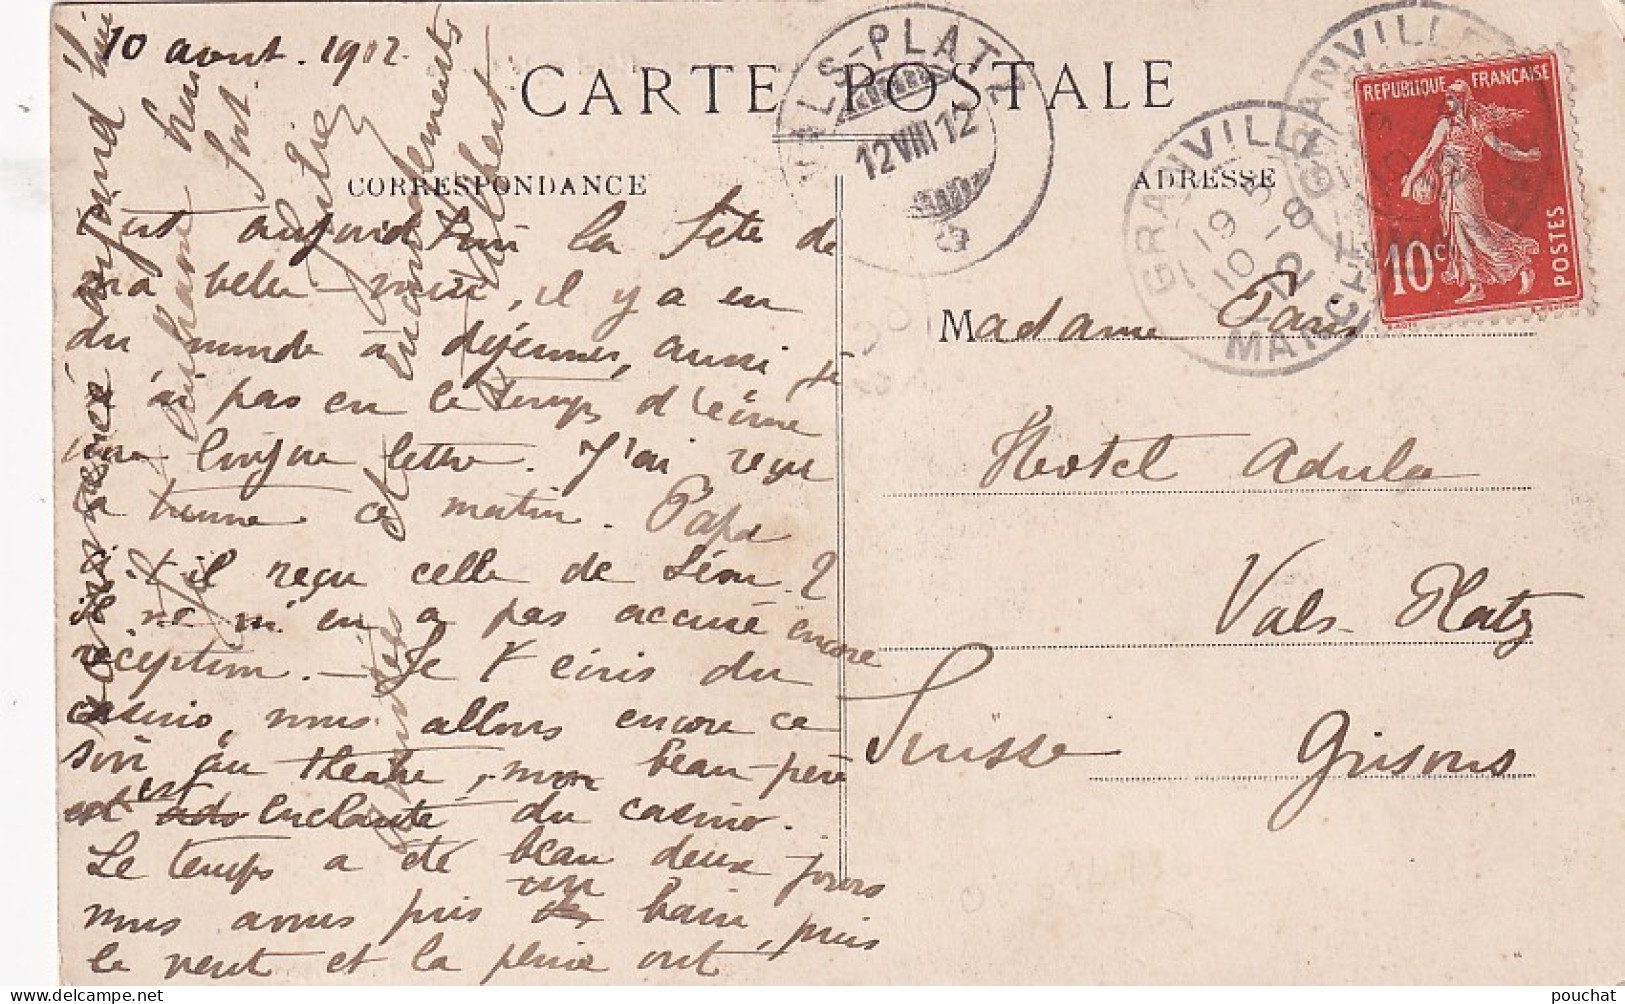 10 avril . 1912.
CARTE POSTALE
CORRESPONDANCE
ADRESSE
VALS-PLATZ
12 VIII 12
GRANVILLE
19 5
10 -8
12
MANCHE
GRANVILLE
REPUBLIQUE FRANÇAISE
10c
POSTES
est aujourd'hui la fête de
ma belle-, il y a eu
du monde à déjeuner, aussi je
n'ai pas eu le temps d'écrire
une longue lettre. J'ai reçu
la tienne ce matin. Papa
a-t-il reçu celle de Léon ?
il ne m'en a pas accusé encore
réception. - Je t'écris du
casino, nous allons encore ce
soir au théatre, mon beau-père
est enchanté du casino.
Le temps a été beau deux jours
nous avons pris un bain, puis
le vent et la pluie ont
recommencé aujourd'hui
Madame Paris
Hotel Adula
Vals-Platz
Suisse Grisons
pouchat